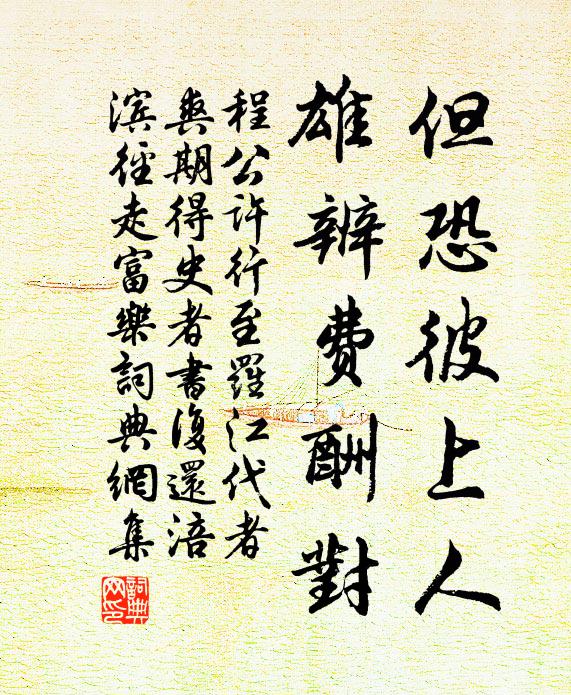 但恐彼上人
雄辨費酬對
程公許行至羅江代者
爽期得史者書復還涪
濱徑走富樂詞典網集
詞典
网印